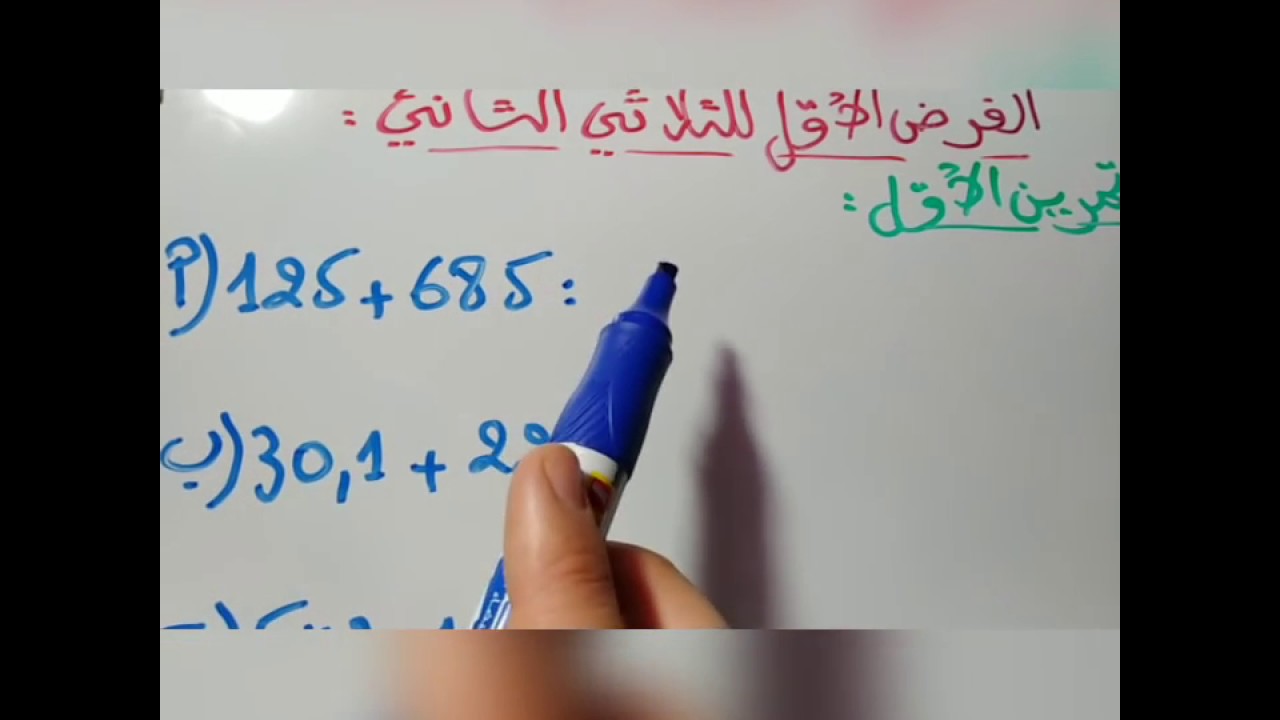 الفرض الأوّل للثلاثي الثاني :
تمرين الأوّل :
أ) 125 + 685 :
ب) 30,1 + 2